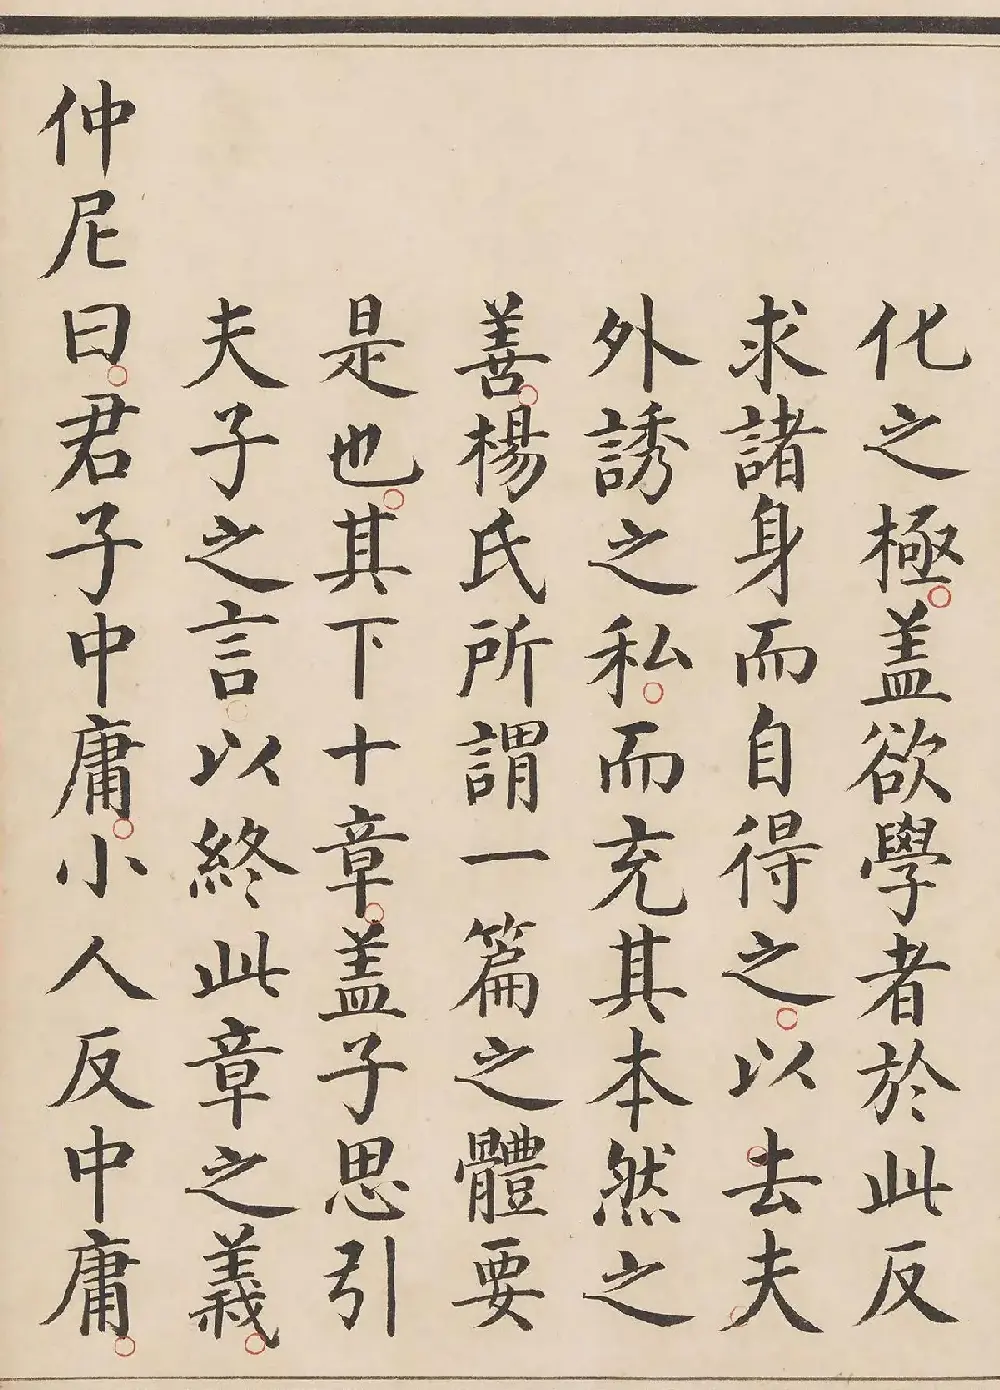 化之極盖欲學者於此反
求諸身而自得之以去夫
外誘之私而充其本然之
善楊氏所謂一篇之體要
是也其下十章盖子思引
夫子之言以終此章之義
仲尼曰君子中庸小人反中庸